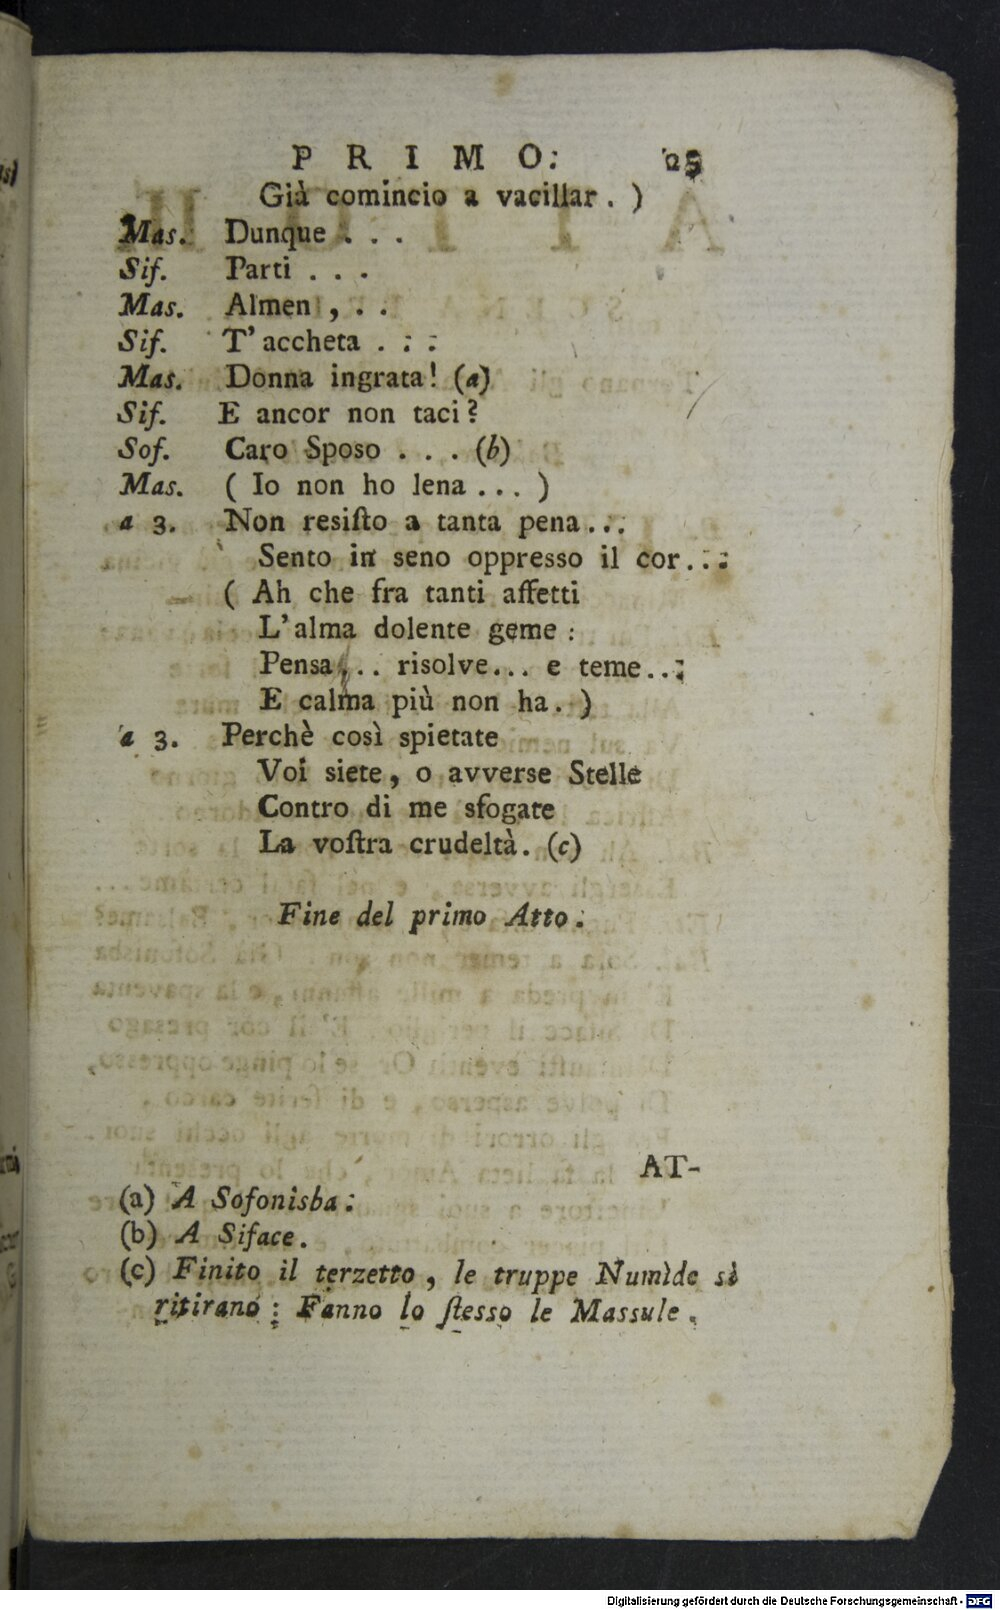 PRIMO. 25
Già comincio a vacillar. )
Mas. Dunque . . .
Sif. Parti . . .
Mas. Almen , . .
Sif. T'accheta . : :
Mas. Donna ingrata! (a)
Sif. E ancor non taci?
Sof. Caro Sposo . . . (b)
Mas. ( Io non ho lena ... )
a 3. Non resiſto a tanta pena...
Sento in seno oppresso il cor..:
( Ah che fra tanti affetti
L'alma dolente geme :
Pensa... risolve... e teme..:
E calma più non ha. )
a 3. Perchè così spietate
Voi siete, o avverse Stelle
Contro di me sfogate
La voſtra crudeltà. (c)
Fine del primo Atto.
AT-
(a) A Sofonisba:
(b) A Siface.
(c) Finito il terzetto, le truppe Numìde si
ritirano : Fanno lo ſtesso le Massule.
Digitalisierung gefördert durch die Deutsche Forschungsgemeinschaft - DFG